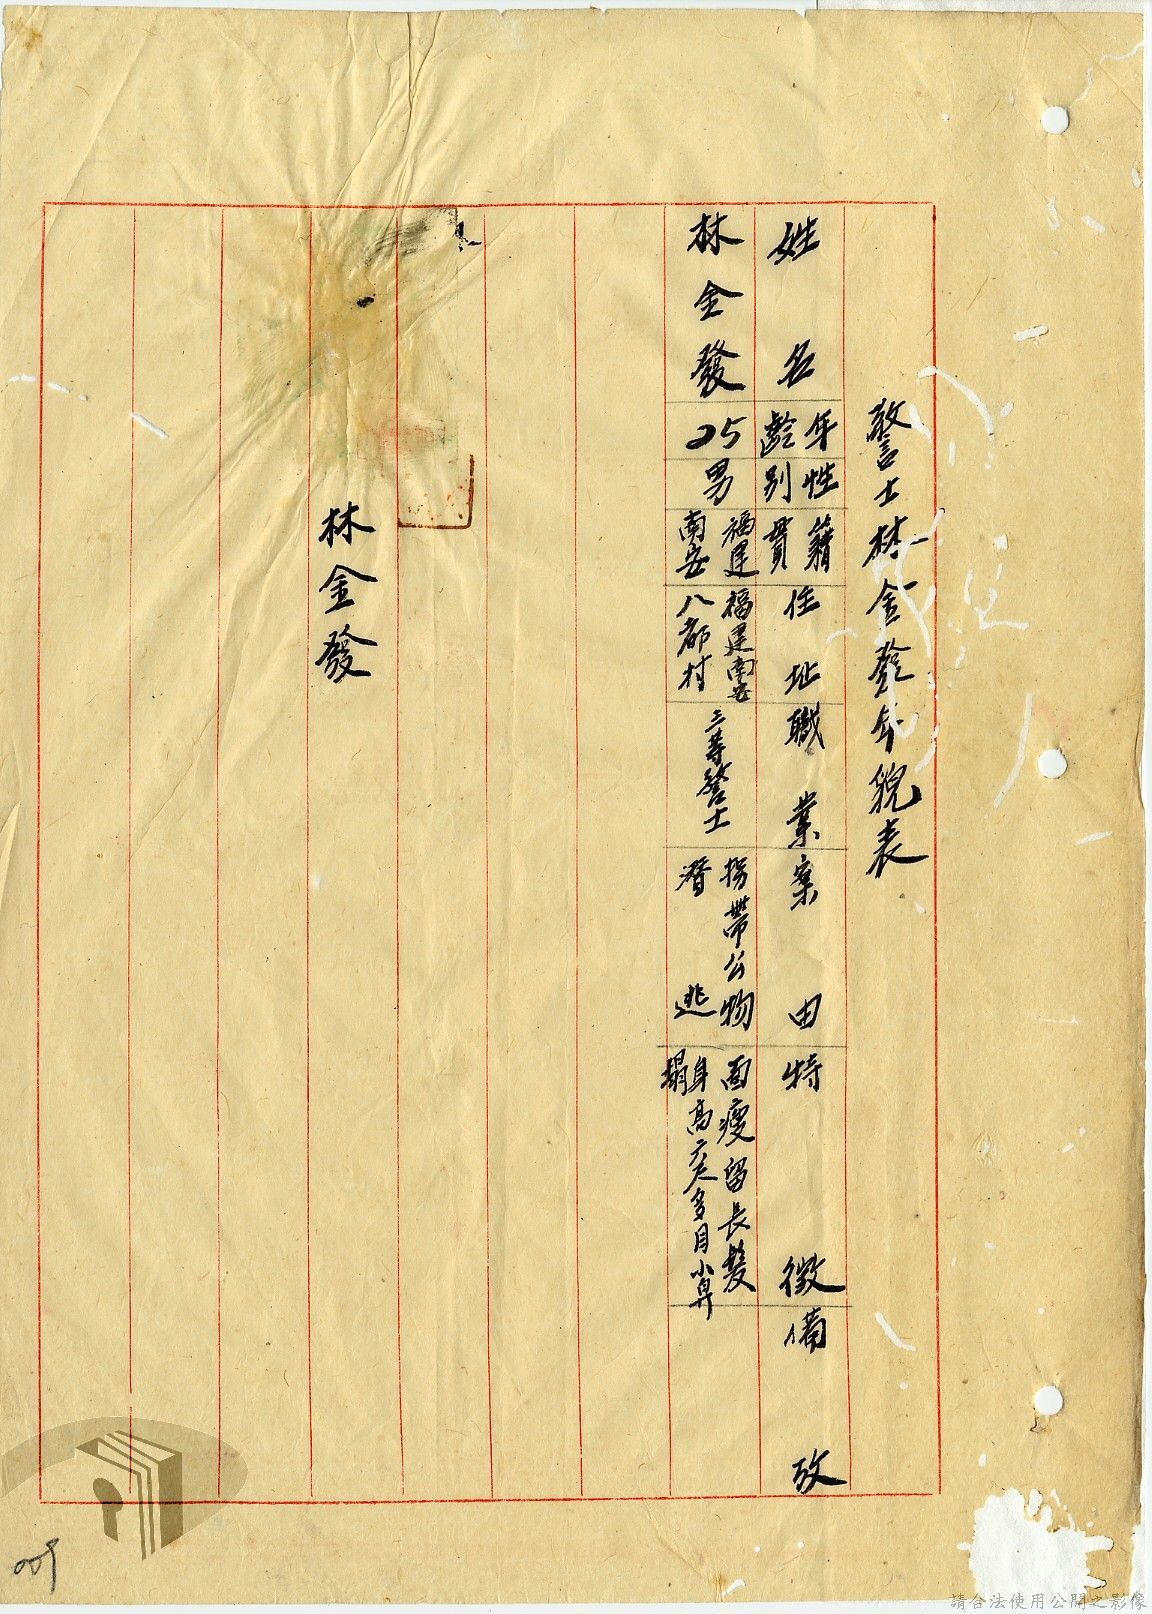 警士林金發年貌表
姓名
年齡
性別
籍貫
住址
職業
案由
特徵
備攷
林金發
25
男
福建
南安
福建南安
八都村
三等警士
拐帶公物
潛逃
面瘦留長髮
身高六尺多目小鼻
塌
林金發
009
請合法使用公開之影像